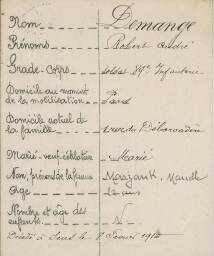 Nom Demange
Prénoms Robert André
Grade-Corps soldat 89e Infanterie
Domicile au moment
de la mobilisation Paris
Domicile actuel de
la famille rue du Débarcadère
Marié-veuf-célibataire Marié
Nom, prénoms de la femme
Age ans
Nombre et âge des
enfants N
Décédé à Sens le